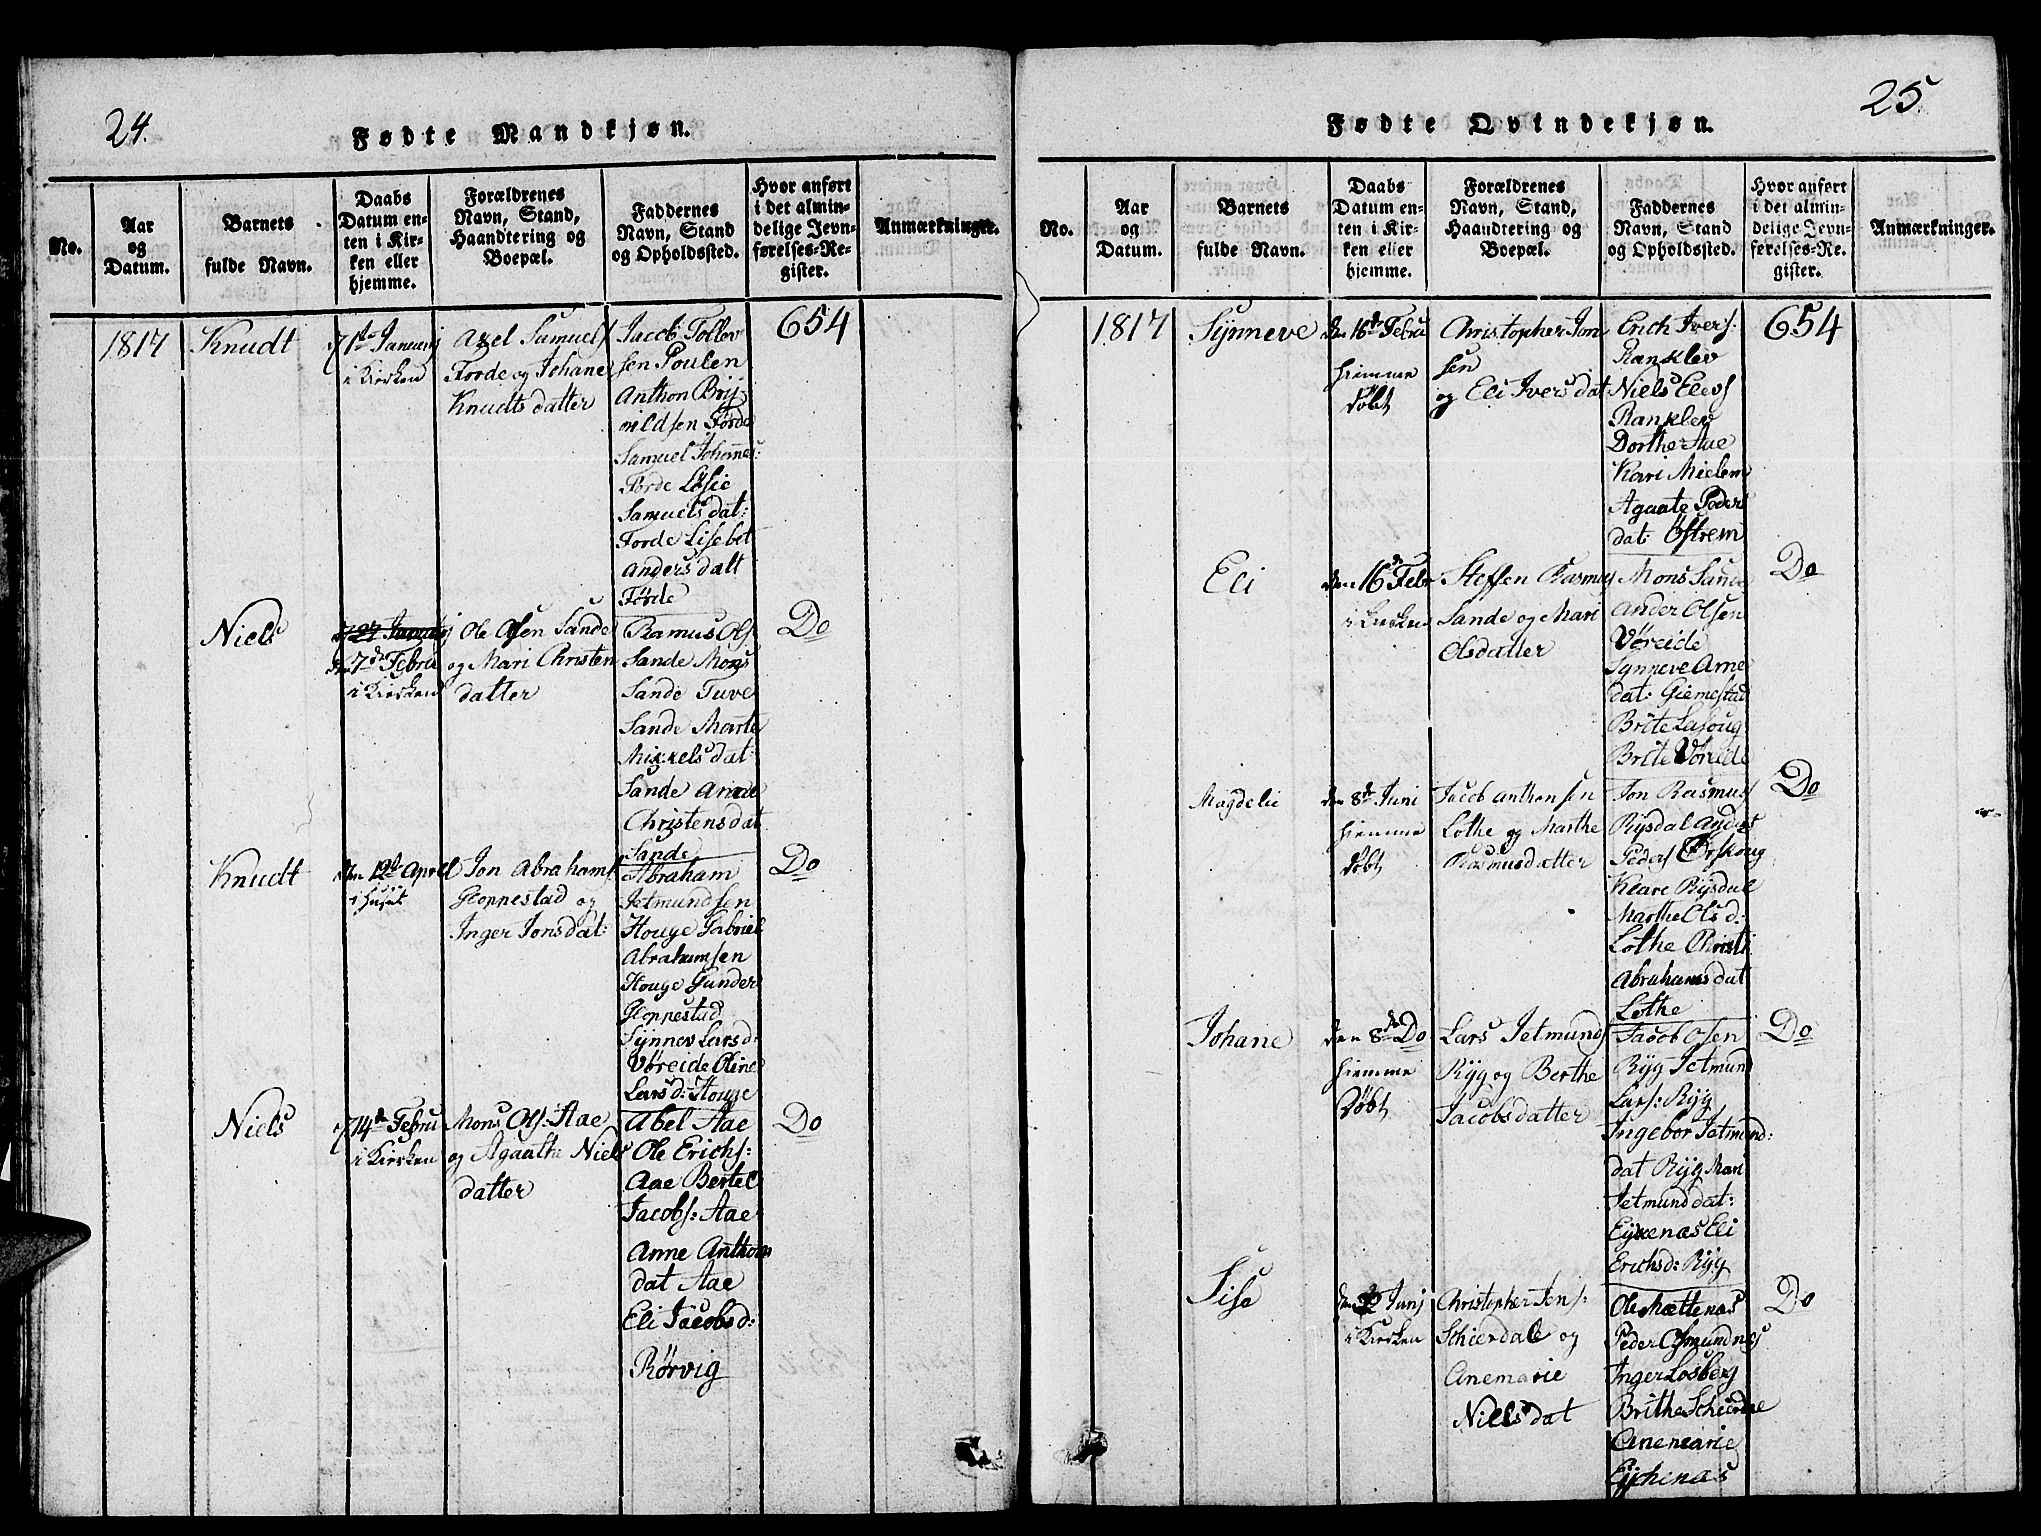 24.
Fødte Mandkjøn.
No.
Aar
og
Datum.
Barnets
fulde Navn.
Daabs
Datum en-
ten i Kir-
ken eller
hjemme.
Forældrenes
Navn, Stand,
Haandtering og
Boepæl.
Faddernes
Navn, Stand
og Opholdssted.
Hvor anført
i det almin-
delige Jevn-
førelses-Re-
gister.
Anmærkninger.
1817
Knudt
1ste Januarj
i Kirken
Axel Samuels
Förde og Johane
Knudts datter
Jacob Tollev
sen Poulen
Anthon Brij
nildsen Förde
Samuel Johannes:
Förde Lisie
Samuelsdat:
Förde Lisebet
Anders datt
Förde
654
Niels
27 Januarj
den 7de Febru
i Kirken
Ole Olsen Sande
og Mari Christen
datter
Ramus Ols
Sande Mons
Sande Tuve
Sande Marte
Mikkelsdat:
Sande Anne
Christensdat
Sande
Do
Knudt
den 12te April
i Huset
Jon Abrahams
Gloppestad og
Inger Jonsdat:
Abraham
Jetmundsen
Houge Gabriel
Abrahamsen
Houge Gunder
Gloppestad
Synnev Larsd:
Vöreide Oline
Larsd: Houge
Do
Niels
14de Febru
i Kirken
Mons Ols: Aae
og Agaathe Niels
datter
Abel Aae
Ole Erichs:
Aae Bertel
Jacobs: Aae
Anne Anthons
dat Aae
Eli Jacobsd:
Rörvig
Do
25.
Fødte Qvindekjøn.
No.
Aar
og
Datum.
Barnets
fulde Navn.
Daabs
Datum en-
ten i Kir-
ken eller
hjemme.
Forældrenes
Navn, Stand,
Haandtering og
Boepæl.
Faddernes
Navn, Stand
og Opholdssted.
Hvor anført
i det almin-
delige Jevn-
førelses-Re-
gister.
Anmærkninger.
1817
Synneve
den 16de Febru
hiemme
döbt
Christopher Jon
sen
og Eli Ivers dat
Erich Ivers:
Ranklev
Niels Elevs
Ranklev
Dorthe Aae
Kari Mielem
Agaate Peders
dat: Östrem
654
Eli
den 16de Febr
i Kirken
Steffen Rasmus
Sande og Mari
Olsdatter
Mons Sande
Ander Olsen
Vöreide
Synneve Arne
dat: Giemestad
Brite
Brite Vöreide
Do
Magdelie
den 8de Juni
hiemme
döbt
Jacob Anthonsen
Lothe og Marthe
Rasmusdatter
Jon Rasmus
Rijsdal Anders
Peders
Klare Rijsdal
Marthe Olsd:
Lothe Christi
Abrahamsdat
Lothe
Do
Johane
den 8de Do
hiemme
Döbt
Lars Jetmunds
Rijg og Berthe
Jacobsdatter
Jacob Osen
Rijg Jetmund
Lars: Rijg
Ingebor Jetmund:
dat Rijg Mari
Jetmunddat:
Eijkenæs Eli
Erichsd: Rijg
Do
Sise
den Junj
i Kirken
Christopher Jens:
Schierdale og
Anemarie
Niels dat
Ole Hættenæs
Peder Osmundnæs
Inger Losberg
Brithe Schierdale
Anemarie
Eijchenæs
Do